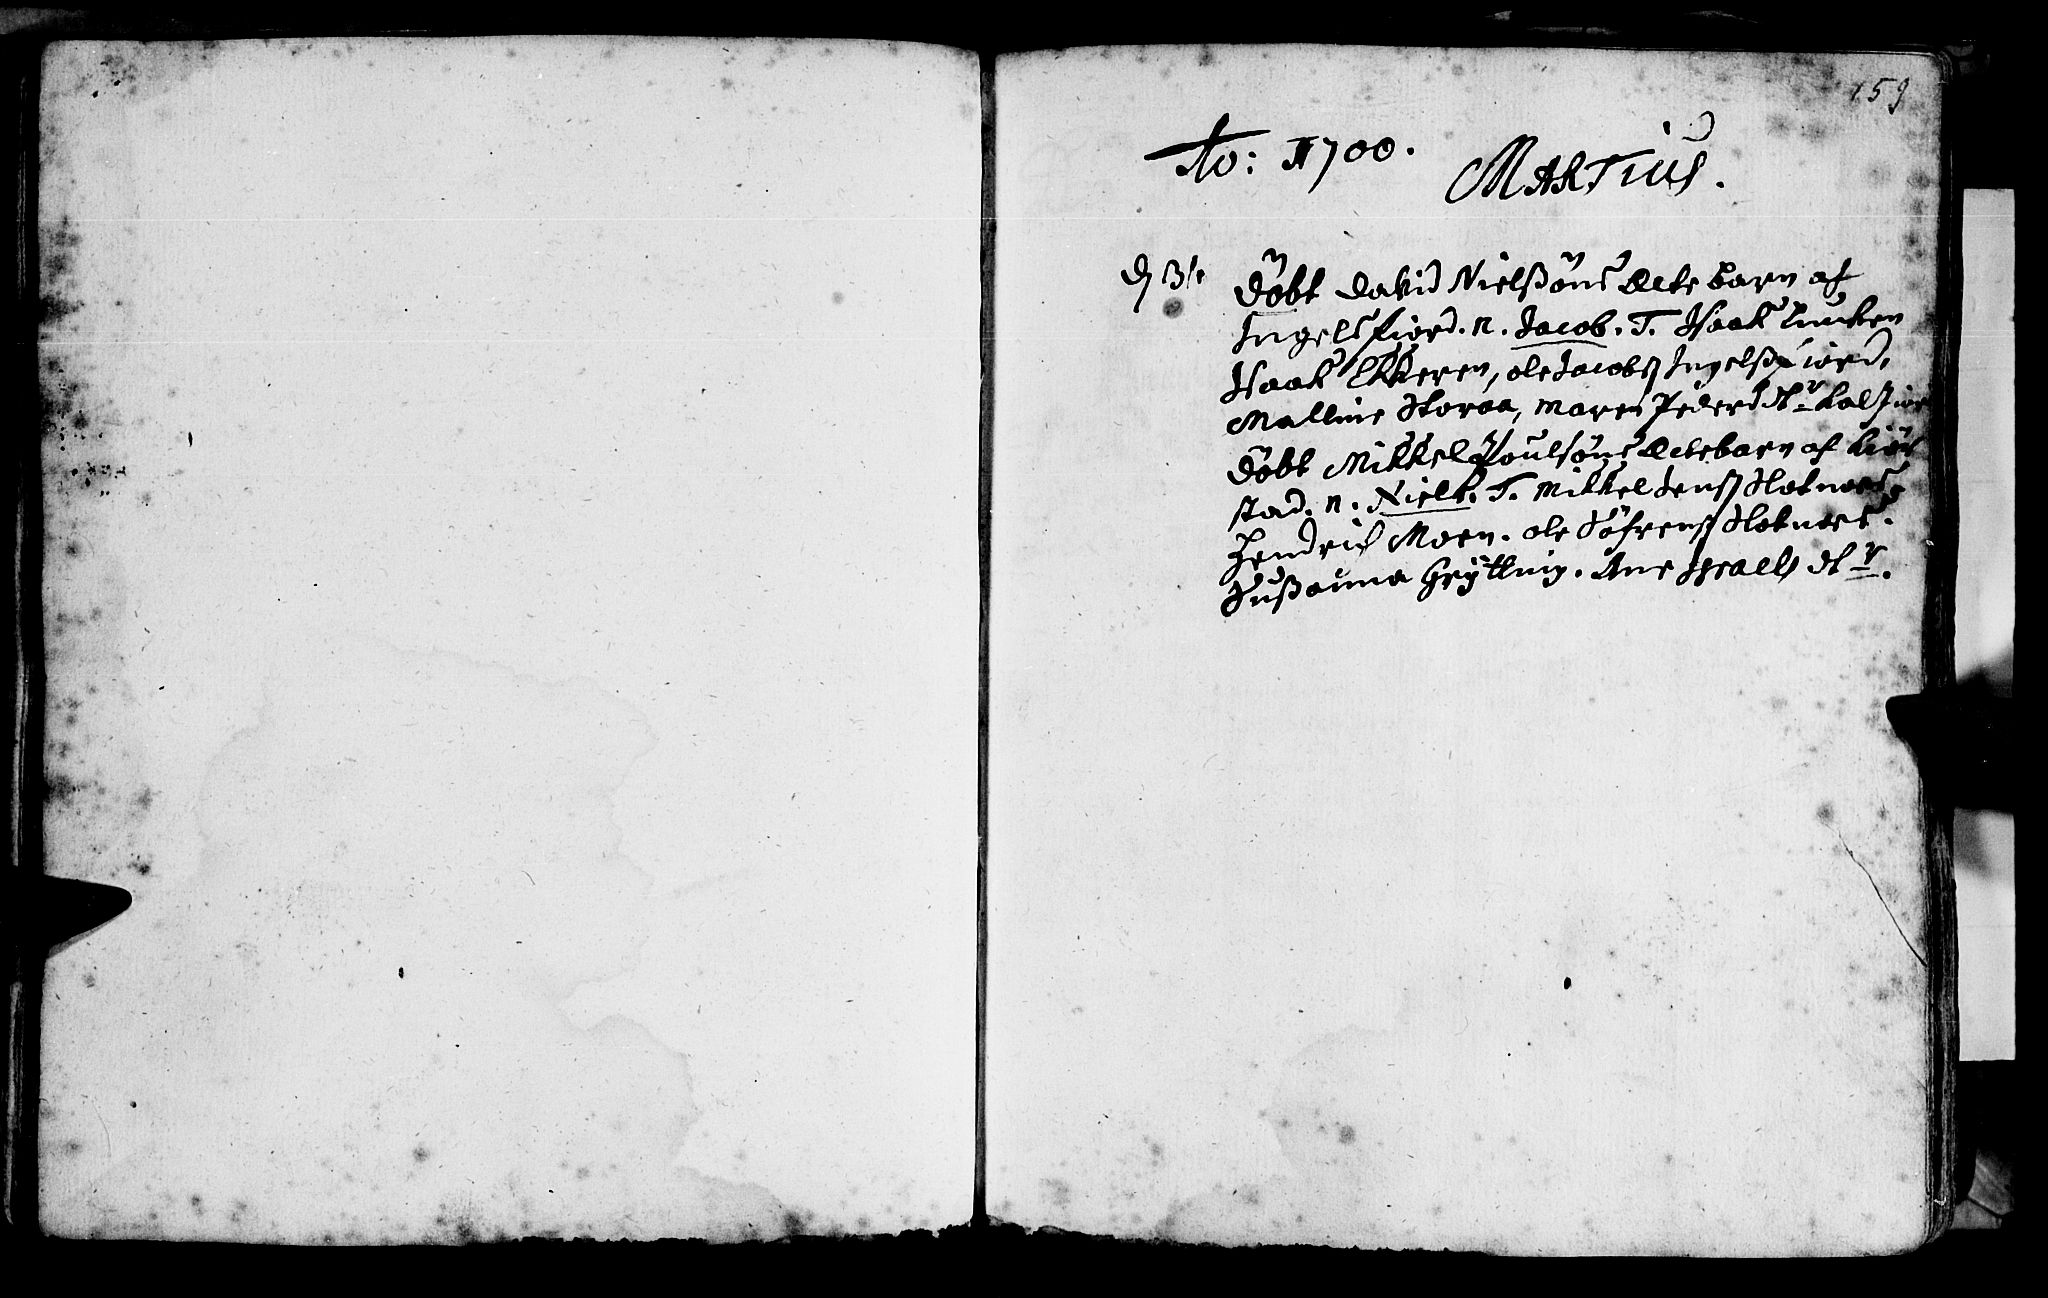 159
Ao: 1700.
MARTIUS.
d 31. döbt David Nielsøns Ecte barn af
Ingelsfiord. n. Jacob. T. Isaak Lunken
Isaak Ekkeren, ole Jacobs Ingelsfiord,
Malline Storaa, Maren Peders dtr
döbt Mikkel Poulsøns Ectebarn af
stad. n. Niels. T. Mikkel Jens Slotnæs
Hendrich Moen. ole Söfrens Slotnæs.
Sußanna Gryttnig. Ane Israels dtr.